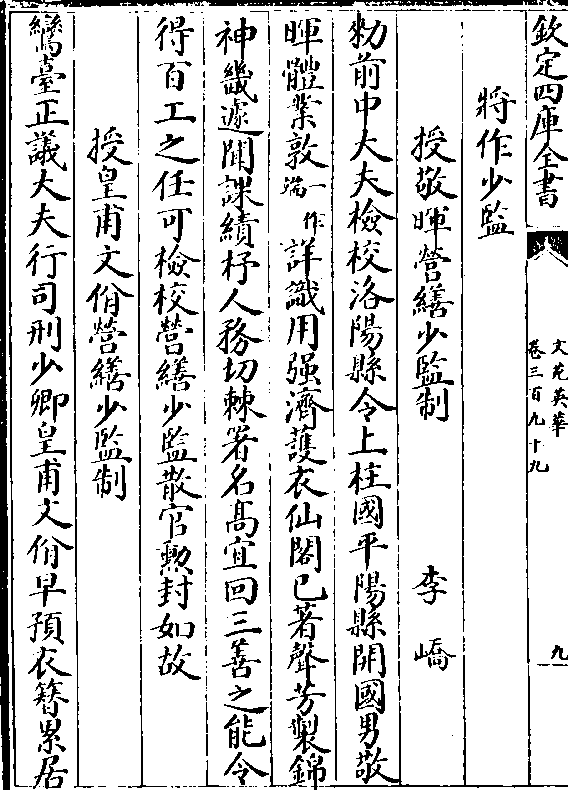 欽定四庫全書
文苑英華
卷三百九十九
九
將作少監
授敬暉營繕少監制 李嶠
勑前中大夫檢校洛陽縣令上柱國平陽縣開國男敬
暉體業敦一作端詳識用强濟護衣仙閣已著聲芳製錦
神畿遽聞課績杼人務切棘署名髙宜回三善之能令
得百工之任可檢校營繕少監散官勲封如故
授皇甫文俏營繕少監制
鸞臺正議大夫行司刑少卿皇甫文俏早預衣簪累居